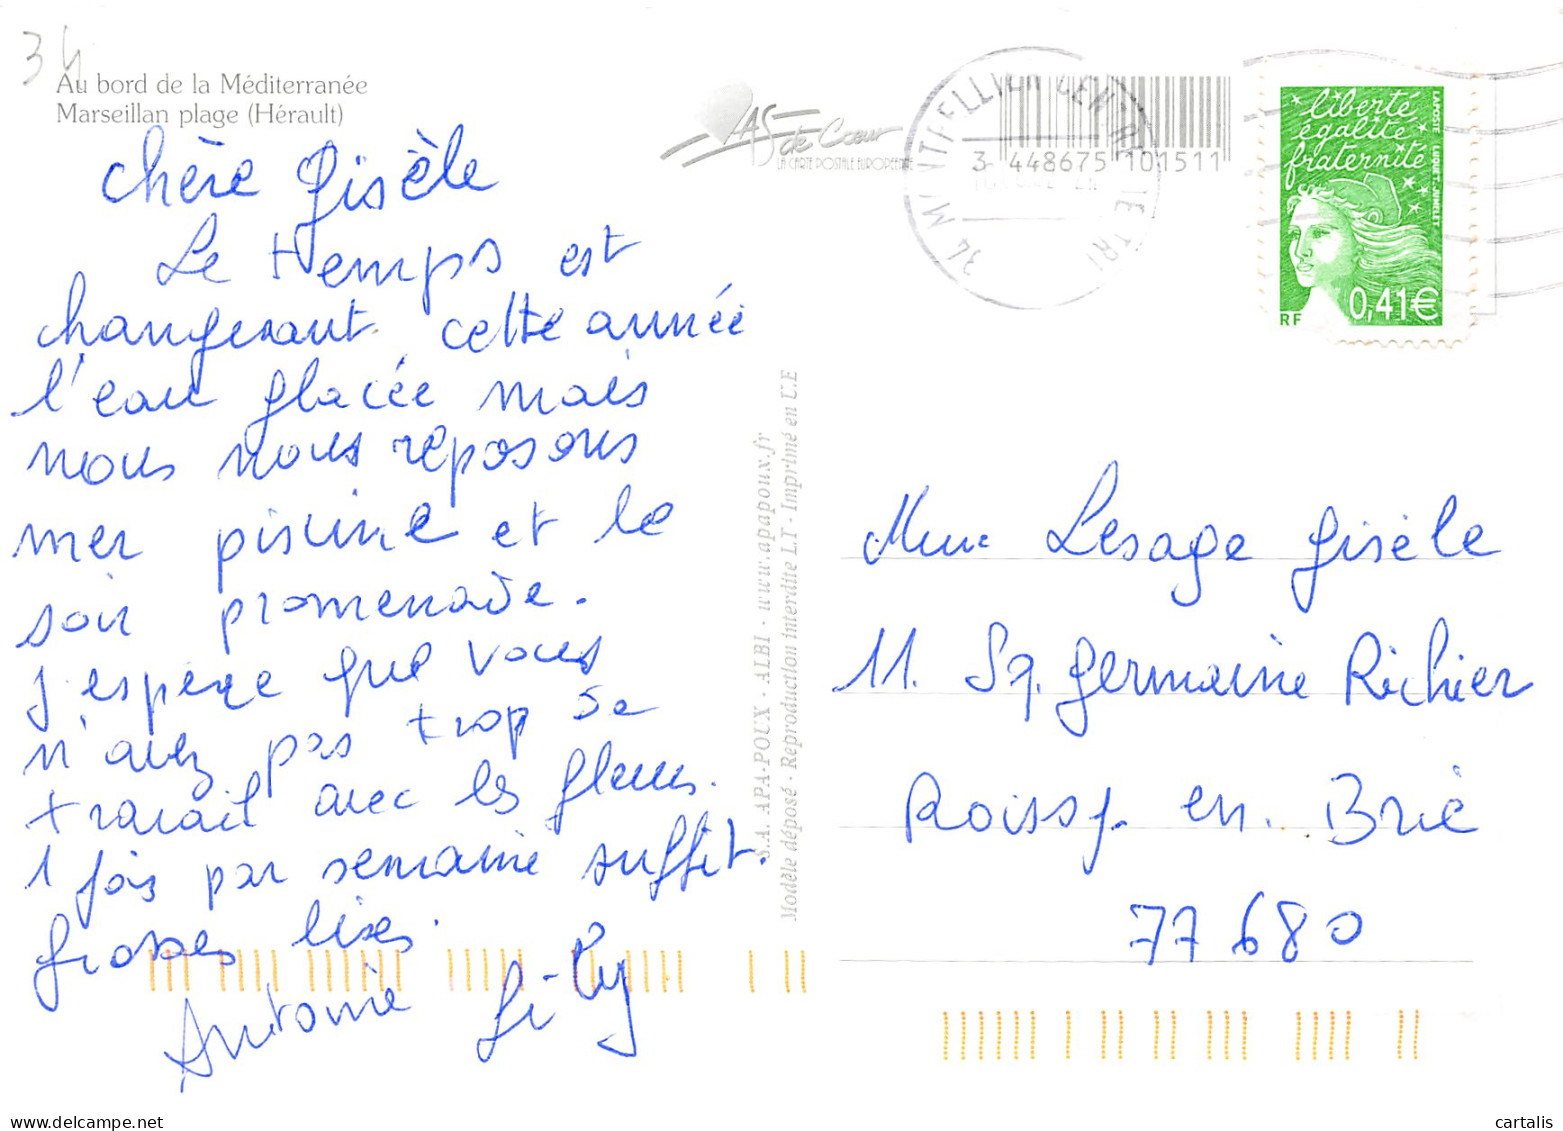 34
Au bord de la Méditerranée
Marseillan plage (Hérault)
Chère Gisèle
Le temps est
changeant cette année
l'eau glacée mais
nous nous reposons
mer piscine et le
soir promenade.
J'espère que vous
n'avez pas trop de
travail avec les fleurs.
1 fois par semaine suffit.
Grosses bises.
Antoine
AS de Cœur
LA CARTE POSTALE EUROPÉENNE
34 MONTPELLIER CENTRE
3 448675 101511
liberté
égalité
fraternité
LA POSTE LUQUET-JUMELET
RF
0,41€
S.A. APA-POUX - ALBI - www.apapoux.fr
Modèle déposé - Reproduction interdite LT - Imprimé en U.E
Mme Lesage Gisèle
11. Sq. Germaine Richier
Roissy. en. Brie
77680
www.delcampe.net
cartalis